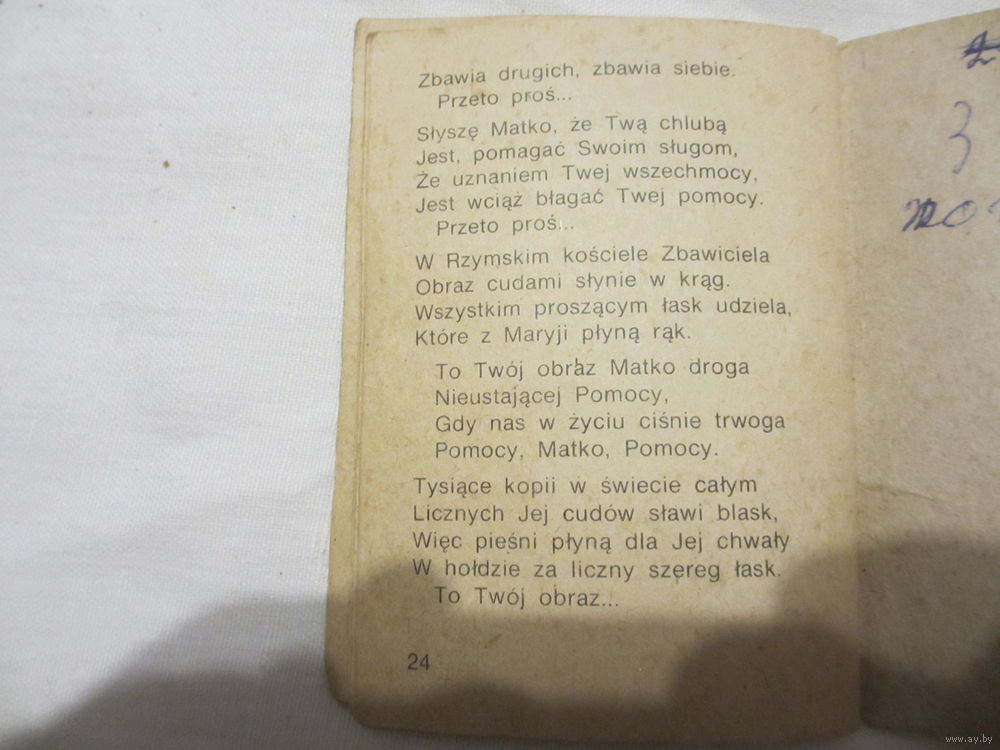 Zbawia drugich, zbawia siebie.
Przeto proś...
Słyszę Matko, że Twą chlubą
Jest, pomagać Swoim sługom,
Że uznaniem Twej wszechmocy,
Jest wciąż błagać Twej pomocy.
Przeto proś...
W Rzymskim kościele Zbawiciela
Obraz cudami słynie w krąg.
Wszystkim proszącym łask udziela,
Które z Maryji płyną rąk.
To Twój obraz Matko droga
Nieustającej Pomocy,
Gdy nas w życiu ciśnie trwoga
Pomocy, Matko, Pomocy.
Tysiące kopii w świecie całym
Licznych Jej cudów sławi blask,
Więc pieśni płyną dla Jej chwały
W hołdzie za liczny szereg łask.
To Twój obraz...
24
3
www.ay.by